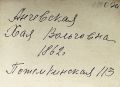 Ангевская
Хая Вольговна
1862.
Потемкинская 113